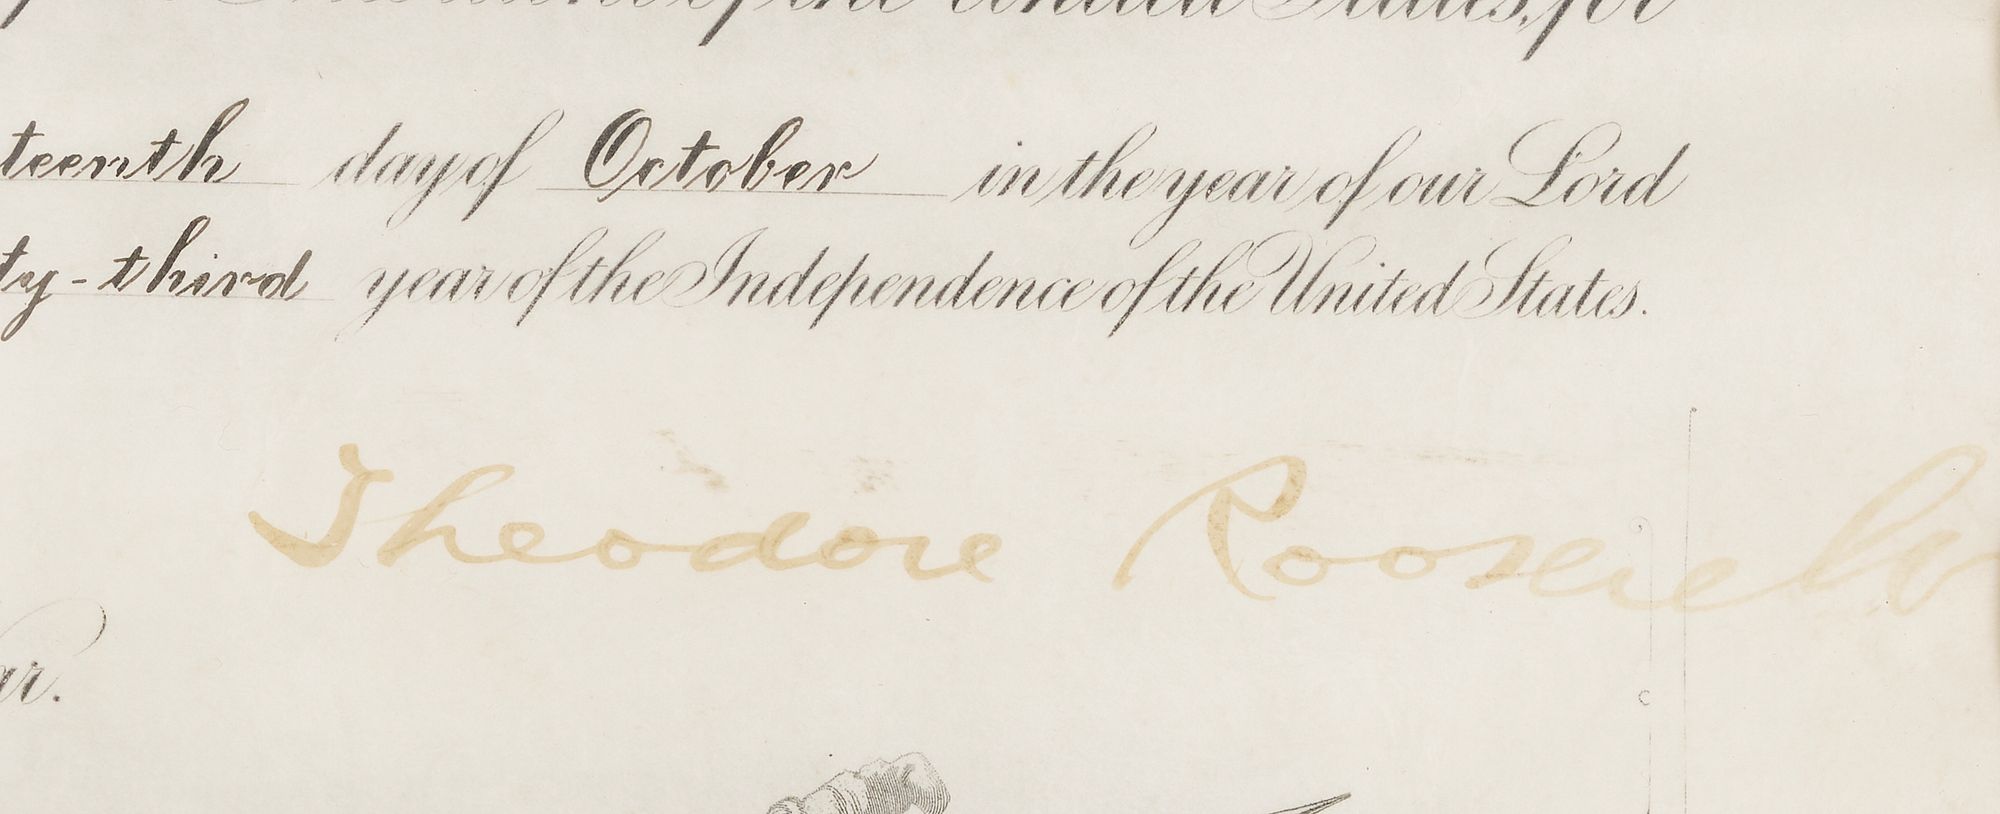 President of the United States, for
teenth day of October in the year of our Lord
ty-third year of the Independence of the United States.
Theodore Roosevelt
ar.